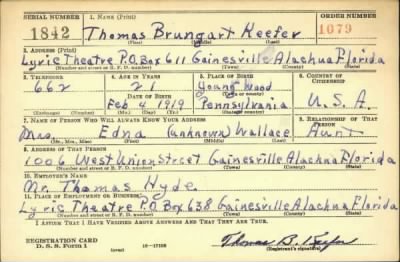 SERIAL NUMBER 1. NAME (Print) ORDER NUMBER
1842 Thomas Brungart Keefer 1079
(First) (Middle) (Last)
2. ADDRESS (Print)
Lyric Theatre P.O. Box 611 Gainesville Alachua Florida
(Number and street or R. F. D. number) (Town) (County) (State)
3. TELEPHONE 4. AGE IN YEARS 5. PLACE OF BIRTH 6. COUNTRY OF CITIZENSHIP
662 21 Young Wood
DATE OF BIRTH (Town or county)
Feb 4 1919 Pennsylvania U.S.A.
(Mo.) (Day) (Yr.) (State or country)
7. NAME OF PERSON WHO WILL ALWAYS KNOW YOUR ADDRESS 8. RELATIONSHIP OF THAT PERSON
Mrs. Edna (unknown) Wallace Aunt
(Mr., Mrs., Miss) (First) (Middle) (Last)
9. ADDRESS OF THAT PERSON
1006 West Union Street Gainesville Alachua Florida
(Number and street or R. F. D. number) (Town) (County) (State)
10. EMPLOYER'S NAME
Mr. Thomas Hyde
11. PLACE OF EMPLOYMENT OR BUSINESS
Lyric Theatre P.O. Box 638 Gainesville Alachua Florida
(Number and street or R. F. D. number) (Town) (County) (State)
I AFFIRM THAT I HAVE VERIFIED ABOVE ANSWERS AND THAT THEY ARE TRUE.
REGISTRATION CARD
D. S. S. Form 1 (over) 16—17105 Thomas B. Keefer
(Registrant's signature)